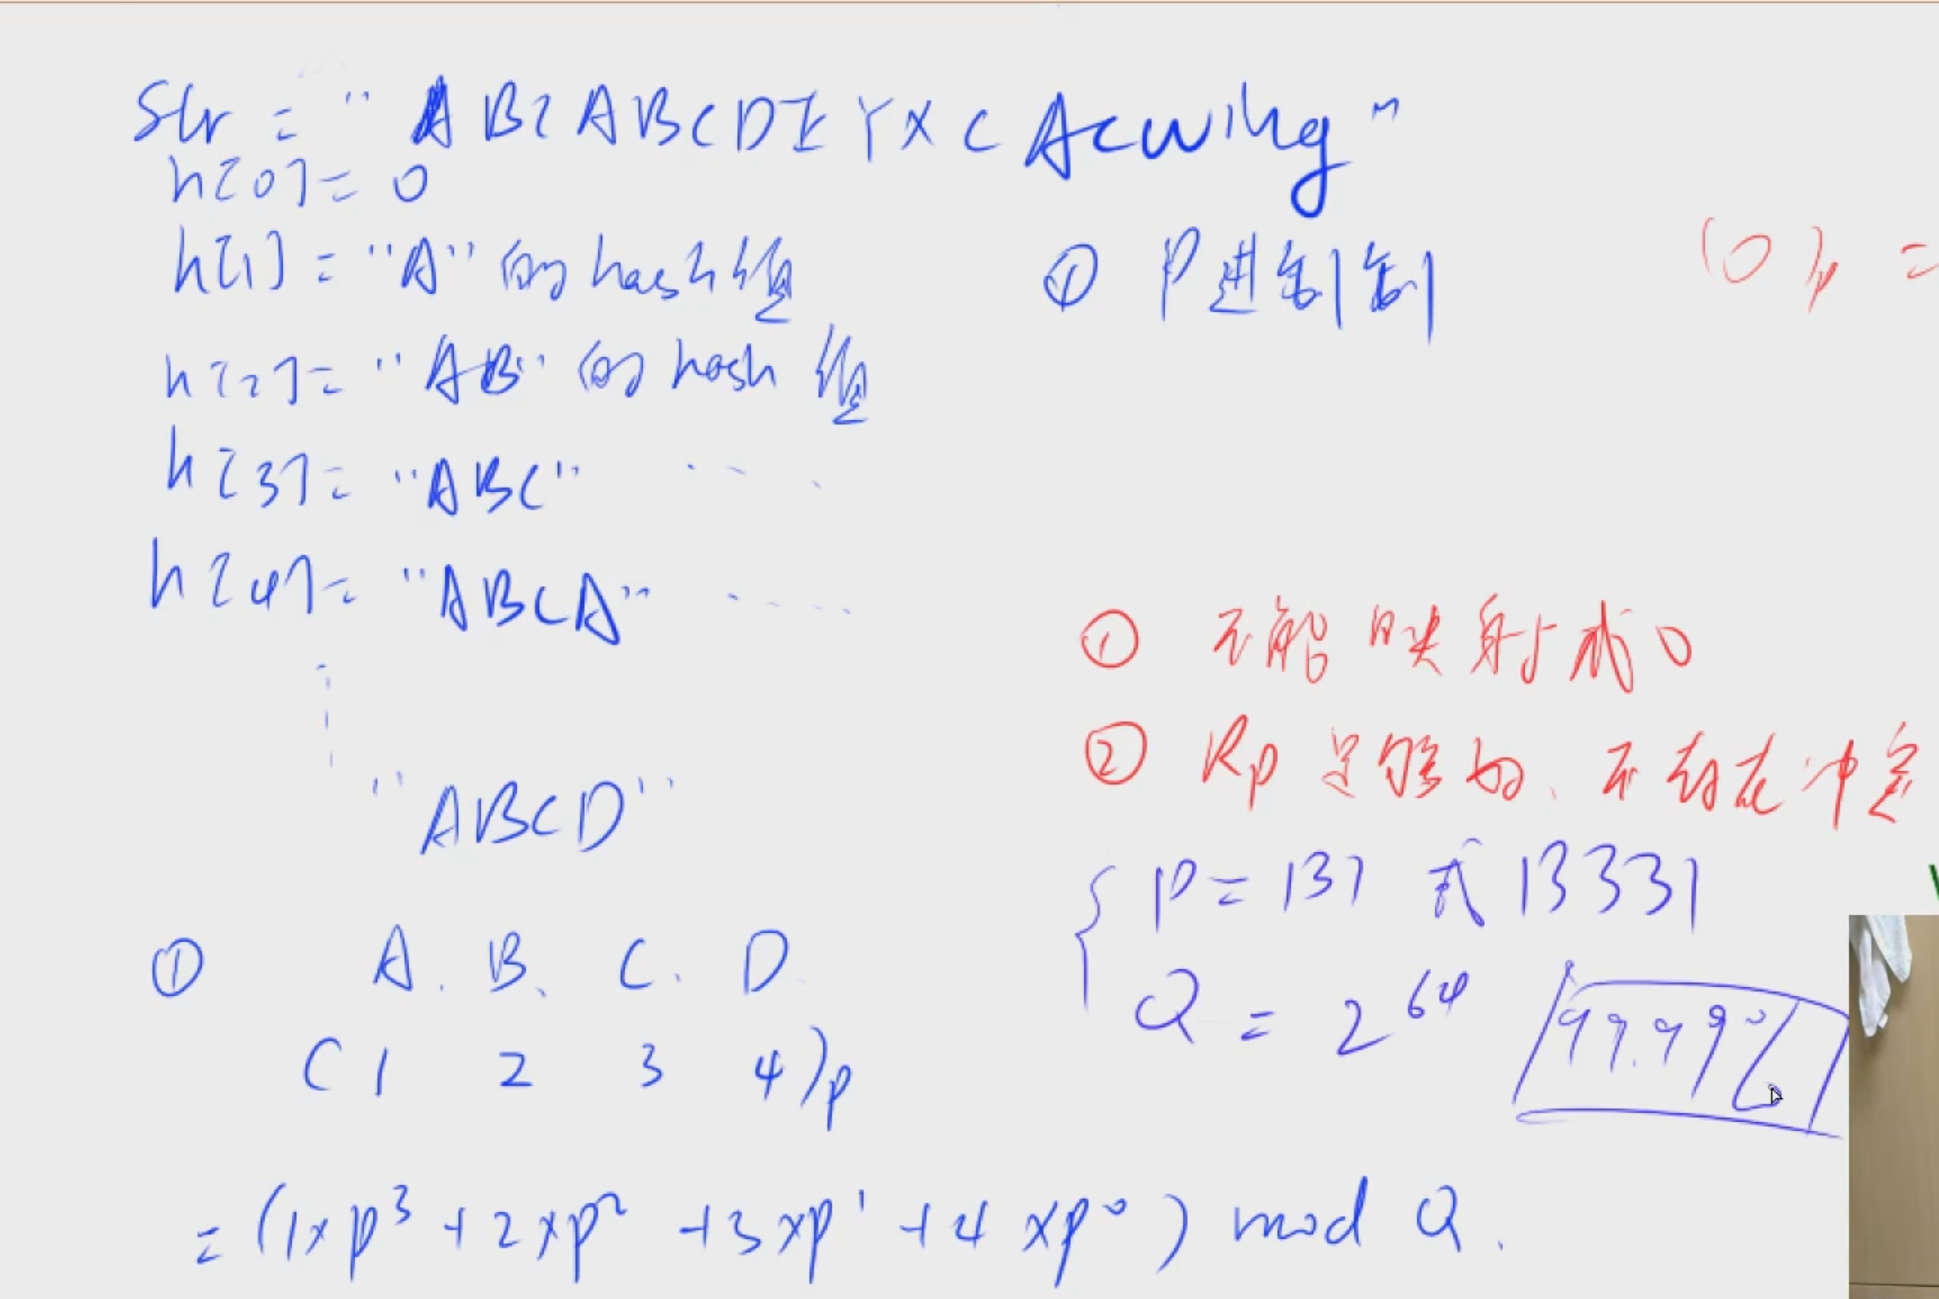 Str = "ABCABCDEYXCAcwing"
h[0] = 0
h[1] = "A" 的 hash 值
h[2] = "AB" 的 hash 值
h[3] = "ABC" ....
h[4] = "ABCA" .....
"ABCD"
① A. B. C. D
(1 2 3 4)p
= (1×p³ + 2×p² + 3×p¹ + 4×p⁰) mod Q.
① P进制
(0)p =
① 不能映射成0
② Rp足够好、不存在冲突
P = 131 或 13331
Q = 2⁶⁴ 99.99%